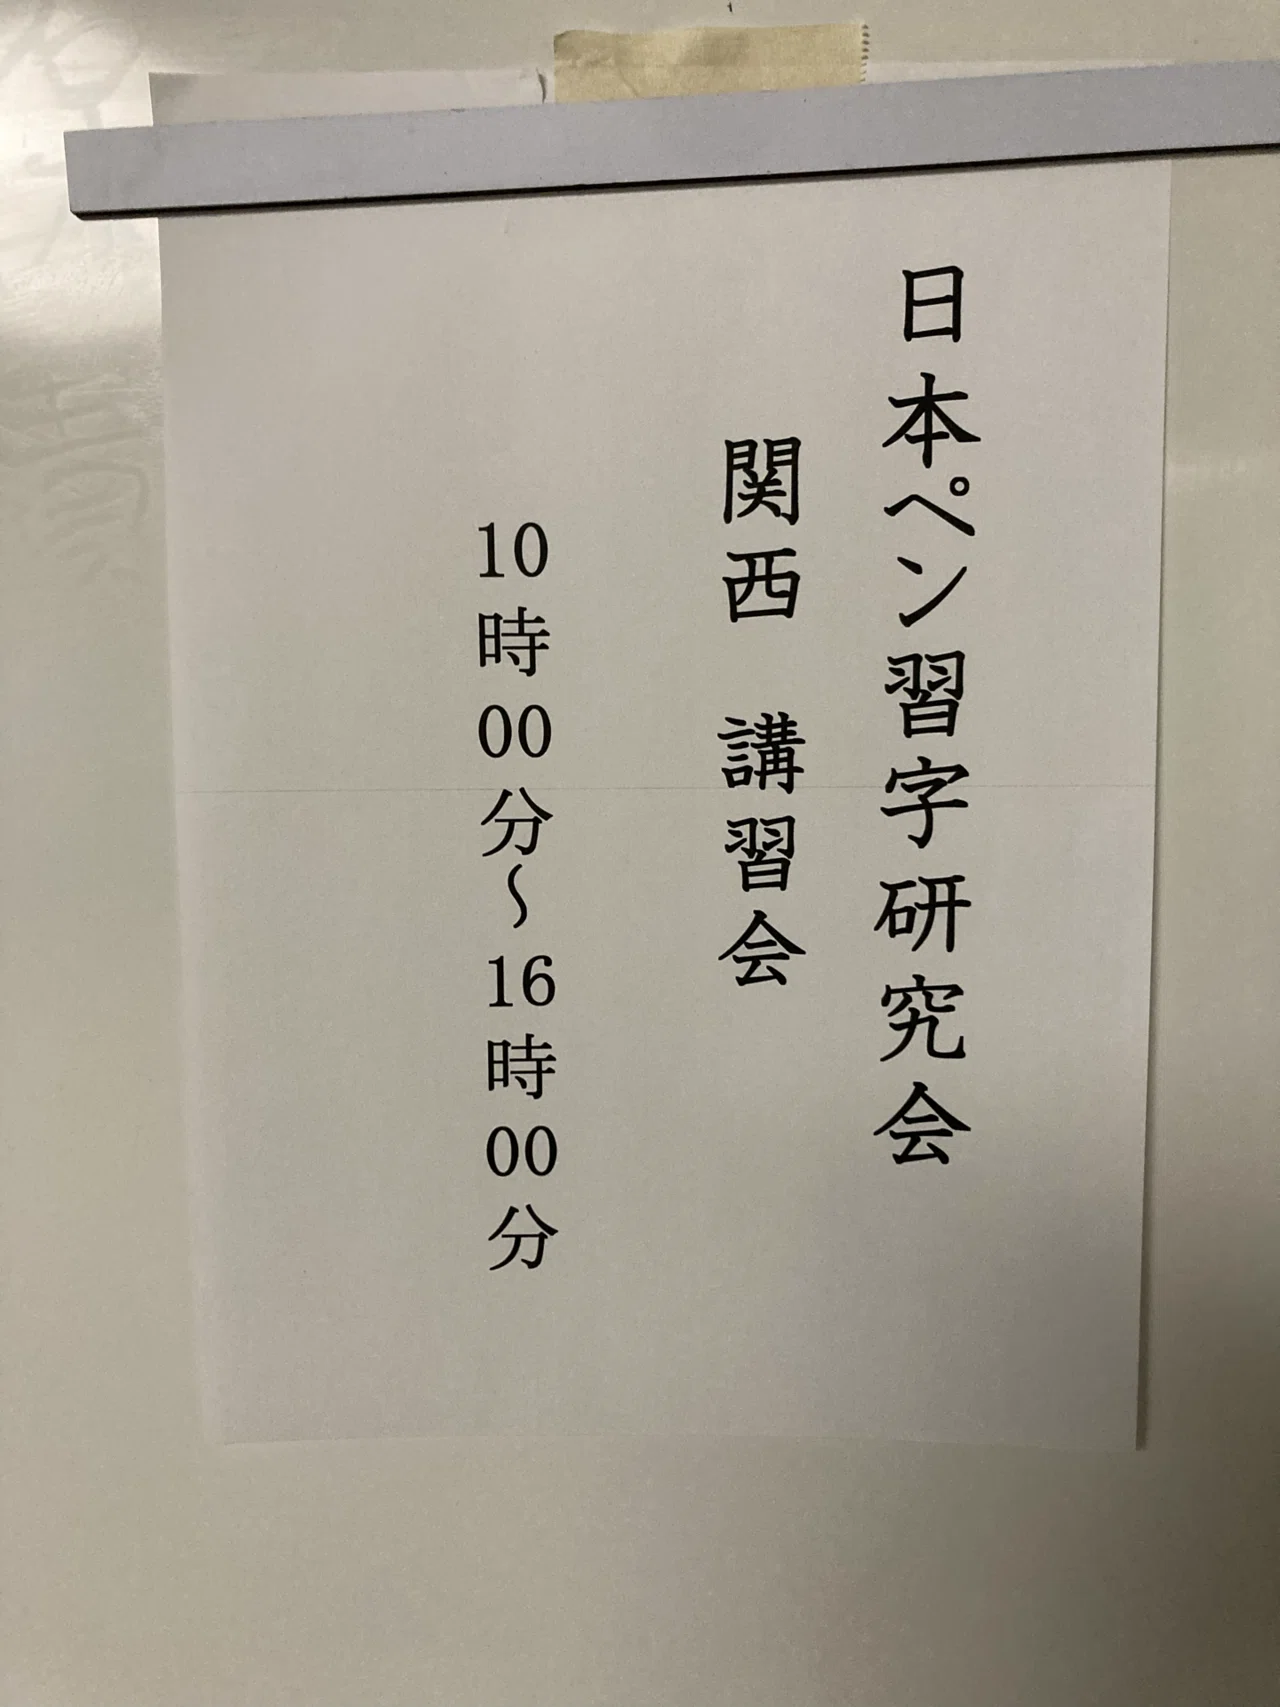 日本ペン習字研究会
関西　講習会
10時00分～16時00分